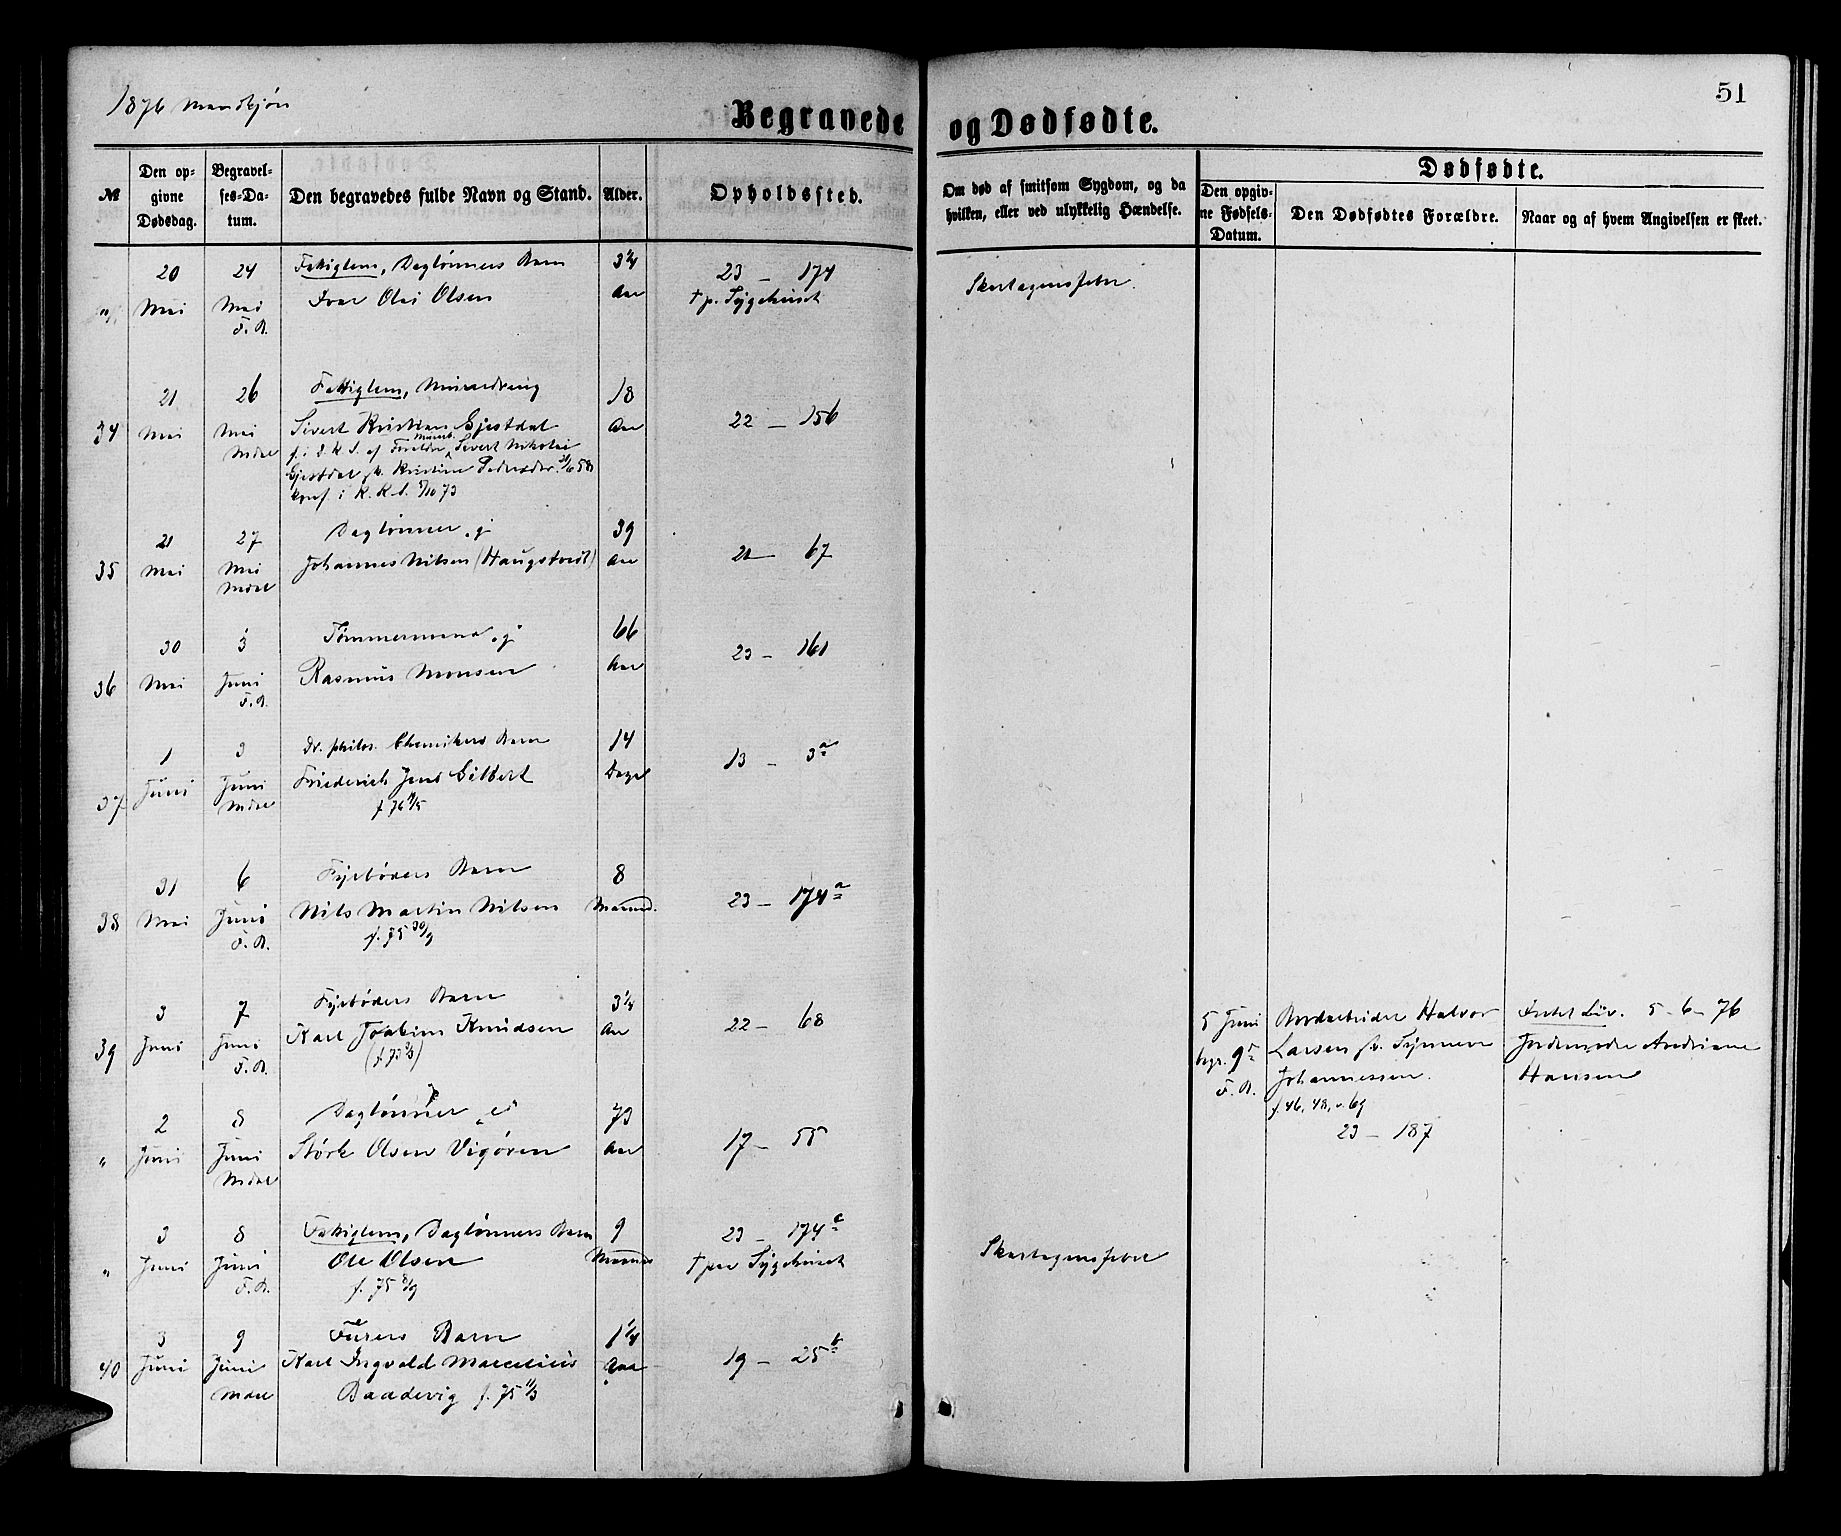 1876 Mandkjøn
Begravede og Dødfødte.
51
№
Den opgivne Dødsdag.
Begravelses-Datum.
Den begravedes fulde Navn og Stand.
Alder.
Opholdssted.
Om død af smitsom Sygdom, og da hvilken, eller ved ulykkelig Hændelse.
Dødfødte.
Den opgivne Fødsels-Datum.
Den Dødfødtes Forældre.
Naar og af hvem Angivelsen er skeet.
20 24 Fattiglem, Daglønners Barn 3¼ 23 – 174 Skarlagensfeber.
Mai Mai Ivar Olai Olsen Aar † p. Sygehuset
F. A.
21 26 Fattiglem, 18
34 Mai Mai Sivert Kristian Gjestdal Aar 22 – 156
Mdal f. i D. K. S. af Forældre Sivert Nikolai
Gjestdal fr. Kristine Pedersdtr.
konf. i K. K. d. 5/10 73
21 27 Daglønner, g 39
35 Mai Mai Johannes Nilsen (Haugstvedt) Aar 21 – 67
Mdal
30 3 Tømmermand, g 66
36 Mai Juni Rasmus Monsen Aar 23 – 161
F. A.
1 3 Dr. philos. Chemikers Barn 14
37 Juni Juni Friederich Jens Gilbert Dage 13 – 3a
Mdal
31 6 Fyrbøders Barn 8
38 Mai Juni Nils Martin Nilsen Maaned. 23 – 174a
F. A. f. 75 30/9
3 7 Fyrbøders Barn 3¼
39 Juni Juni Karl Joakim Knudsen Aar 22 – 68
F. A.
5 Juni Halvor Intet Liv. 5-6-76
begr. 9de Larsen fr. Synneve Jordemoder Andriane
F. A. Johannessen. Hansen
f. 46, 48, v. 69
23 – 187
2 8 Daglønner 73
" Juni Juni Størk Olsen Vigøren Aar 17 – 55
Mdal
3 8 Fattiglem, Daglønners Barn 9 23 – 174c Skarlagensfeber
" Juni Juni Ole Olsen Maaned † paa Sygehuset
F. A. f. 75 8/9
3 9 Barn 1¼
40 Juni Juni Karl Ingvald Marcelius Aar 19 – 25b
Mdal Baadevig f. 75 11/3